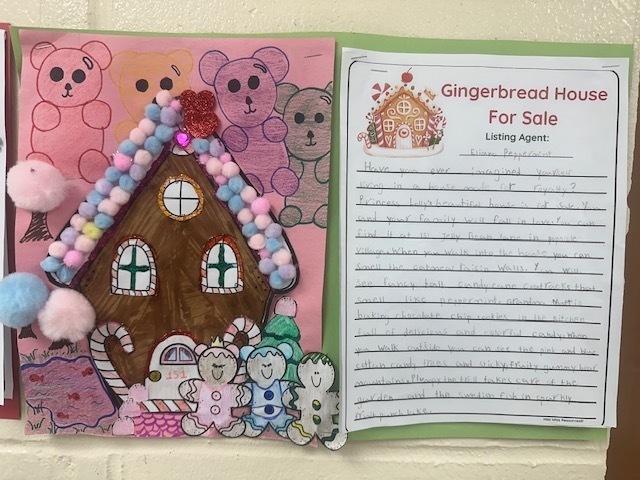 151
Gingerbread House
For Sale
Listing Agent:
Eliana Peppermint
Have you ever imagined yourself
living in a house made for royalty?
Princess Lolly's beautiful house is for sale
and your family will fall in love!
find it at 151 Jelly Bean Lane in
village. When you walk into the house you can
smell the oatmeal raisin walls. You will
see fancy tall candy cane
smell like peppermint. Grandma is
baking chocolate chip cookies in the kitchen
full of delicious and colorful candy. When
you walk outside you can see the pink and blue
cotton candy trees and sticky, fruity gummy bear
mountains. takes care of the
garden and the swedish fish in sparkly
fruit punch lake.